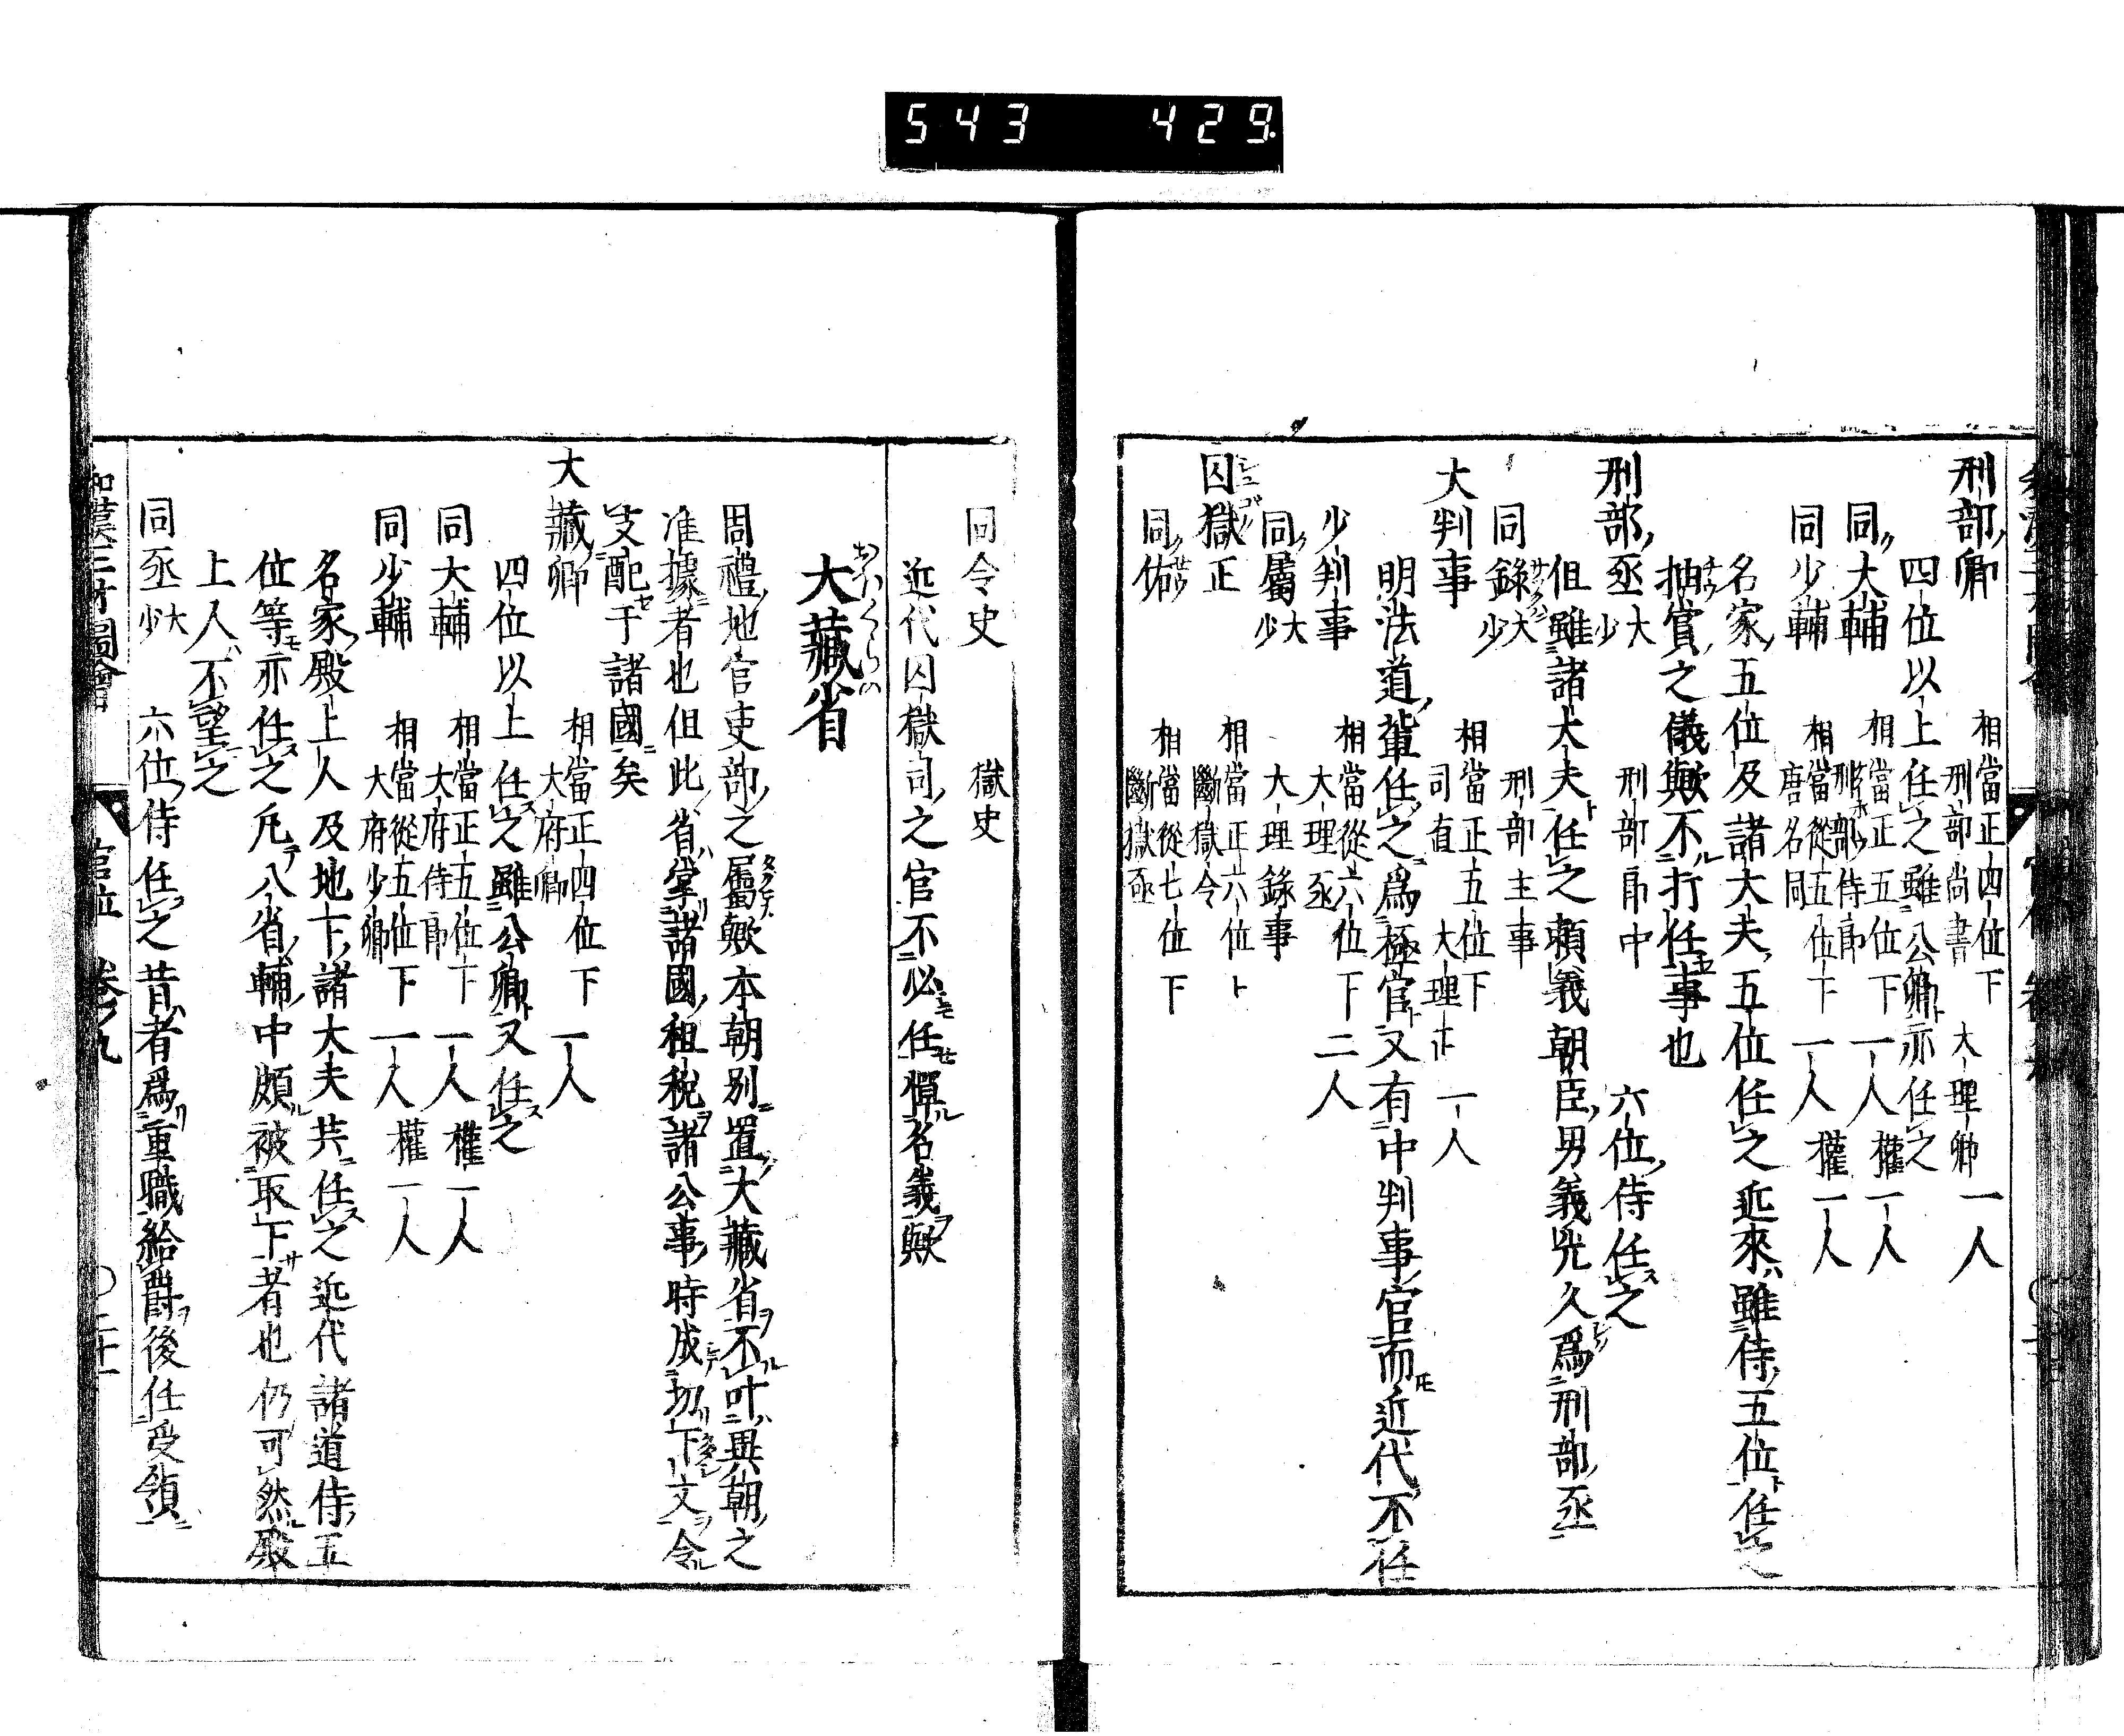 543 429
刑部卿 相當正四位下 刑部尚書 大理卿 一人
四位以上任之雖公卿亦任之
同大輔 相當正五位下 刑部侍郎 一人 權一人
同少輔 相當從五位下 唐名同 一人 權一人
名家五位及諸大夫五位任之近來雖侍五位任之
抽賞之儀歟不打任事也
刑部丞 大少 刑部郎中 六位侍任之
但雖諸大夫任之頼義朝臣男義光久爲刑部丞
同錄 大少 刑部主事
大判事 相當正五位下 司直 大理正 一人
明法道輩任之爲極官又有中判事官而近代不任
少判事 相當從六位下 大理丞 二人
同屬 大少 大理錄事
囚獄正 相當正六位上 斷獄令
同佑 相當從七位下 斷獄丞
同令史 獄史
近代囚獄司之官不必任憚名義歟
大藏省
おほくら
周禮地官吏部之屬歟本朝別置大藏省不叶異朝之
准據者也但此省掌諸國租税諸公事時成切下文令
支配于諸國矣
大藏卿 相當正四位下 大府卿 一人
四位以上任之雖公卿又任之
同大輔 相當正五位下 大府侍郎 一人 權一人
同少輔 相當從五位下 大府少卿 一人 權一人
名家殿上人及地下諸大夫共任之近代諸道侍五
位等亦任之凡八省輔中頗被取下者也仍可然殿
上人不望之
同丞 大少 六位侍任之昔者爲重職給爵後任受領
和漢三才圖會 官位 卷ノ九 〇二十一